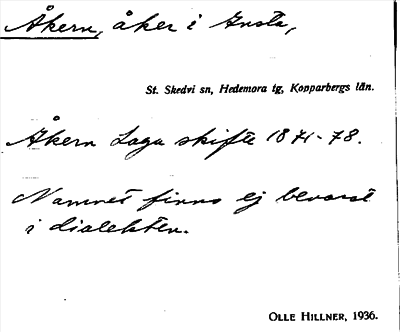 Åkern, åker i Gusta,
St. Skedvi sn, Hedemora tg, Kopparbergs län.
Åkern Laga skifte 1871-78.
Namnet finns ej bevarat
i dialekten.
OLLE HILLNER, 1936.